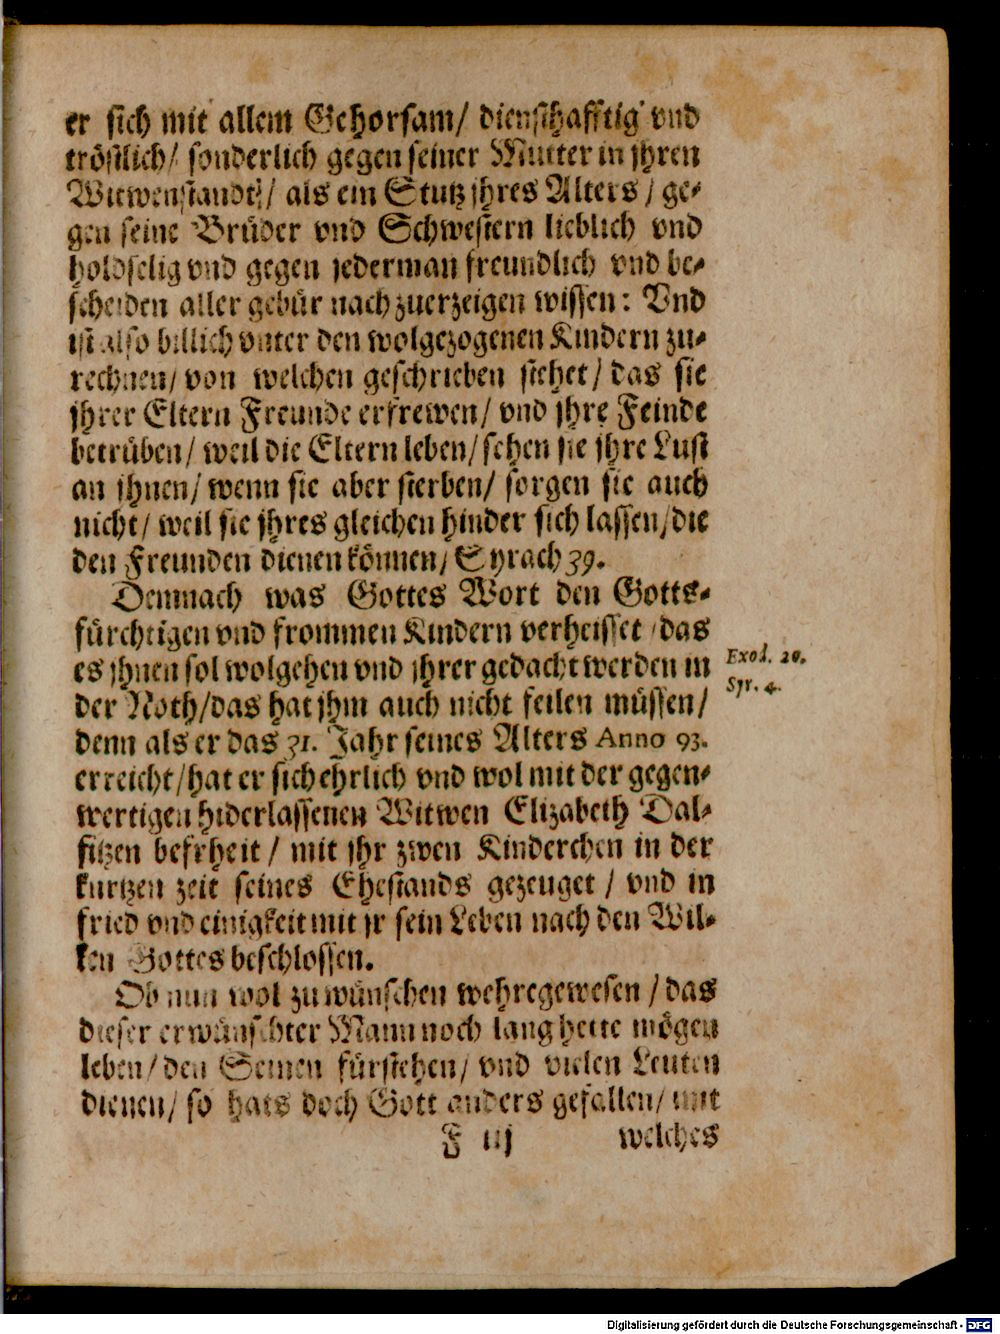 er sich mit allem Gehorsam/ diensthafftig vnd
tröstlich/ sonderlich gegen seiner Mutter in jhren
Witwenstandt/ als ein Stutz jhres Alters/ ge-
gen seine Brüder vnd Schwestern lieblich vnd
holdselig vnd gegen jederman freundlich vnd be-
scheiden aller gebür nach zuerzeigen wissen: Vnd
ist also billich vnter den wolgezogenen Kindern zu-
rechnen/ von welchen geschrieben stehet/ das sie
jhrer Eltern Freunde erfrewen/ vnd jhre Feinde
betrüben/ weil die Eltern leben/ sehen sie jhre Lust
an jhnen/ wenn sie aber sterben/ sorgen sie auch
nicht/ weil sie jhres gleichen hinder sich lassen/ die
den Freunden dienen können/ Syrach 39.
Demnach was Gottes Wort den Gotts-
fürchtigen vnd frommen Kindern verheisset / das
es jhnen sol wolgehen vnd jhrer gedacht werden in
Exod. 20.
der Noth/ das hat jhm auch nicht feilen müssen/
Syr. 4.
denn als er das 31. Jahr seines Alters Anno 93.
erreicht/ hat er sich ehrlich vnd wol mit der gegen-
wertigen hiderlassenen Witwen Elizabeth Dal-
fitzen befrheit / mit jhr zwen Kinderchen in der
kurtzen zeit seines Ehestands gezeuget / vnd in
fried vnd einigkeit mit jr sein Leben nach den Wil-
ken Gottes beschlossen.
Ob nun wol zu wünschen wehre gewesen / das
dieser erwünschter Mann noch lang hette mögen
leben/ den Seinen fürstehen/ vnd vielen Leuten
dienen/ so hats doch Gott anders gefallen/ mit
F iij welches
Digitalisierung gefördert durch die Deutsche Forschungsgemeinschaft - DFG